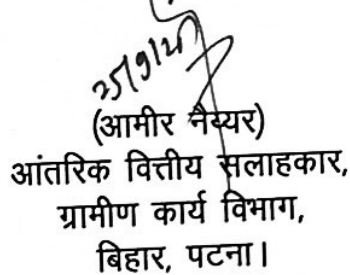 25/9/24
(आमीर नैय्यर)
आंतरिक वित्तीय सलाहकार,
ग्रामीण कार्य विभाग,
बिहार, पटना।